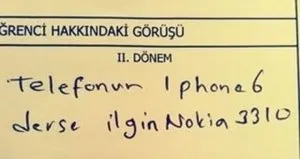 ĞRENCİ HAKKINDAKİ GÖRÜŞÜ
II. DÖNEM
Telefonun Iphone6
derse ilgin Nokia 3310